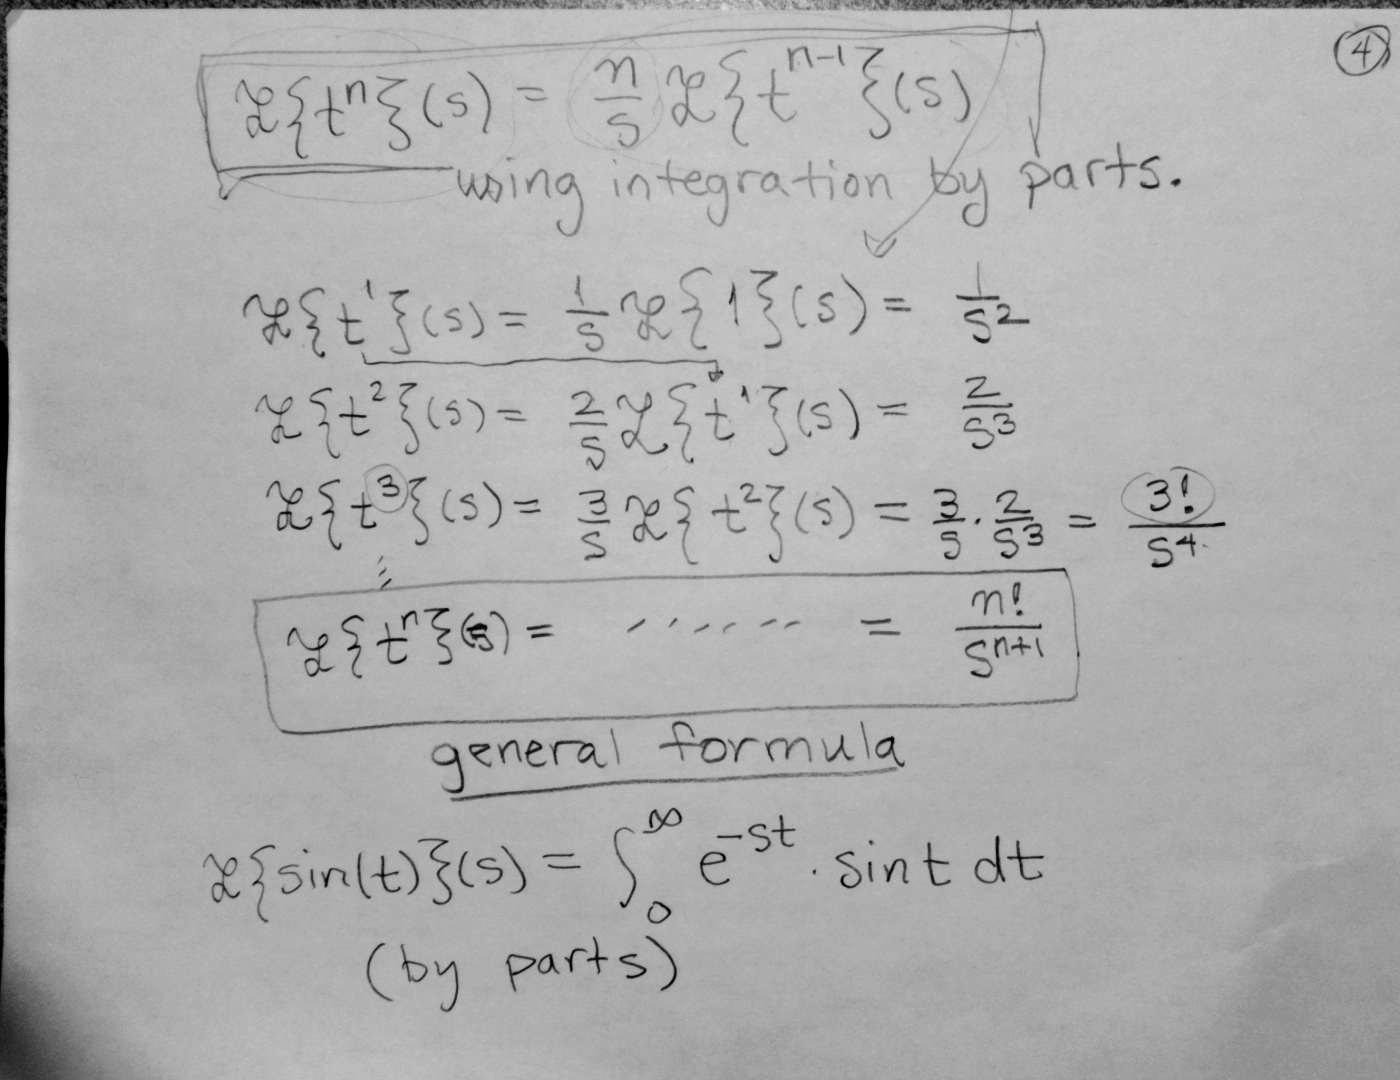 ④
ℒ{tⁿ}(s) = n/s ℒ{tⁿ⁻¹}(s)
using integration by parts.
ℒ{t¹}(s) = 1/s ℒ{1}(s) = 1/s²
ℒ{t²}(s) = 2/s ℒ{t¹}(s) = 2/s³
ℒ{t³}(s) = 3/s ℒ{t²}(s) = 3/s · 2/s³ = 3!/s⁴
ℒ{tⁿ}(s) = ....... = n!/sⁿ⁺¹
general formula
ℒ{sin(t)}(s) = ∫₀^∞ e^(-st) · sin t dt
(by parts)